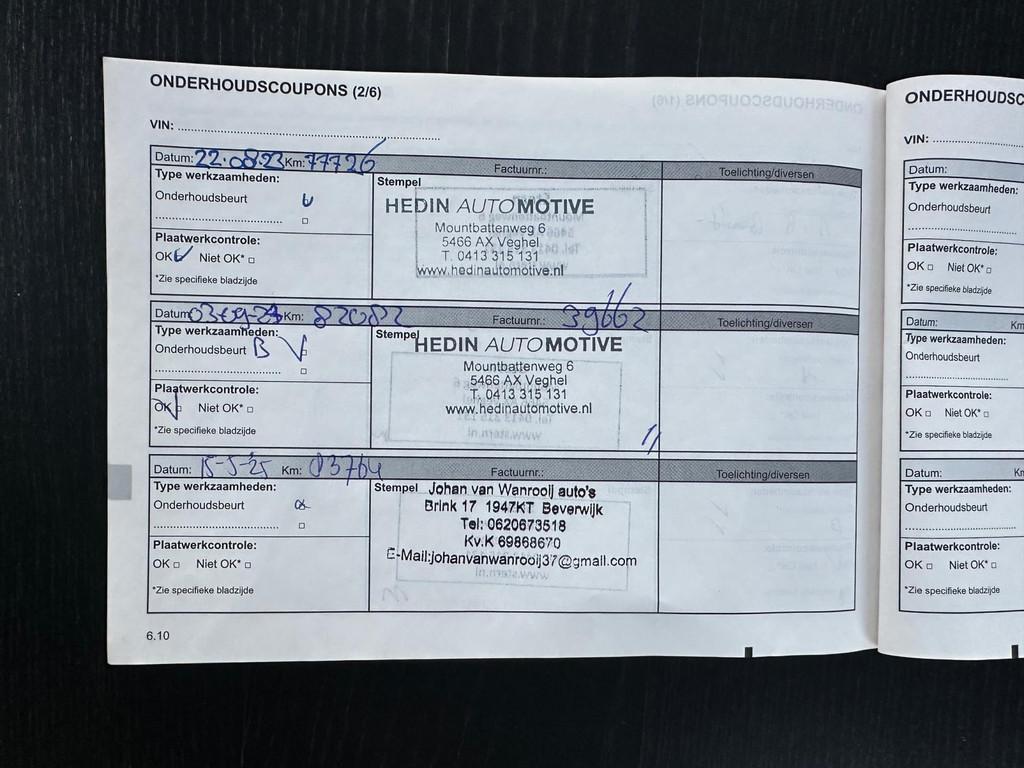 ONDERHOUDSCOUPONS (2/6)
VIN:
Datum: 22.08.23 Km: 77726 Factuurnr.: Toelichting/diversen
Type werkzaamheden:
Onderhoudsbeurt
Plaatwerkcontrole:
OK Niet OK*
*Zie specifieke bladzijde
Stempel
HEDIN AUTOMOTIVE
Mountbattenweg 6
5466 AX Veghel
T. 0413 315 131
www.hedinautomotive.nl
Datum Km: 82082 Factuurnr.: 39662 Toelichting/diversen
Type werkzaamheden:
Onderhoudsbeurt B
Plaatwerkcontrole:
OK Niet OK*
*Zie specifieke bladzijde
Stempel
HEDIN AUTOMOTIVE
Mountbattenweg 6
5466 AX Veghel
T. 0413 315 131
www.hedinautomotive.nl
Datum: 15-5-25 Km: Factuurnr.: Toelichting/diversen
Type werkzaamheden:
Onderhoudsbeurt
Plaatwerkcontrole:
OK Niet OK*
*Zie specifieke bladzijde
Stempel
Johan van Wanrooij auto's
Brink 17 1947KT Beverwijk
Tel: 0620673518
Kv.K 69868670
E-Mail:johanvanwanrooij37@gmail.com
6.10
ONDERHOUDSC
VIN:
Datum:
Type werkzaamheden:
Onderhoudsbeurt
Plaatwerkcontrole:
OK Niet OK*
*Zie specifieke bladzijde
Datum: Km
Type werkzaamheden:
Onderhoudsbeurt
Plaatwerkcontrole:
OK Niet OK*
*Zie specifieke bladzijde
Datum: Km
Type werkzaamheden:
Onderhoudsbeurt
Plaatwerkcontrole:
OK Niet OK*
*Zie specifieke bladzijde